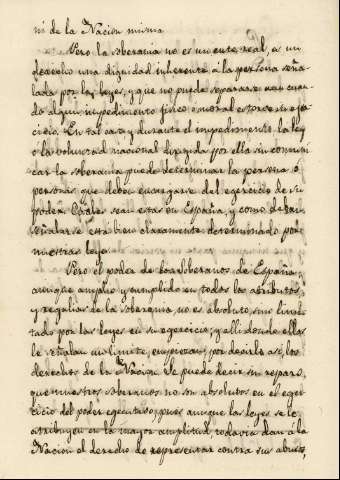 ni de la Nacion misma
Pero la soberania no es un ente real, es un
derecho una dignidad inherente á la persona seña
lada por las leyes, y que no puede separarse aun cuan
do algun impedimento fisico o moral estorve su ejer
cicio. En tal caso y durante el impedimento, la ley
o la voluntad nacional dirigida por ella sin comuni
car la soberania puede determinar la persona o
personas que deben encargarse del egercicio de su
poder. Cuales sean estas en España, y como deban
señalarse esta bien claramente determinado por
nuestras leyes.
Pero el poder de los soberanos de España,
aunque amplio y cumplido en todos los atributos,
y regalias de la soberania, no es absoluto, sino limi
tado por las leyes en su egercicio, y alli donde ellas
le señalan un limite, empiezan por decirlo así, los
derechos de la Nacion. Se puede decir sin reparo,
que nuestros soberanos no son absolutos en el eger
cicio del poder egecutivo, pues aunque las leyes se le
atribuyen en la mayor amplitud, todavia dan á la
Nacion el derecho de representar contra sus abusos,